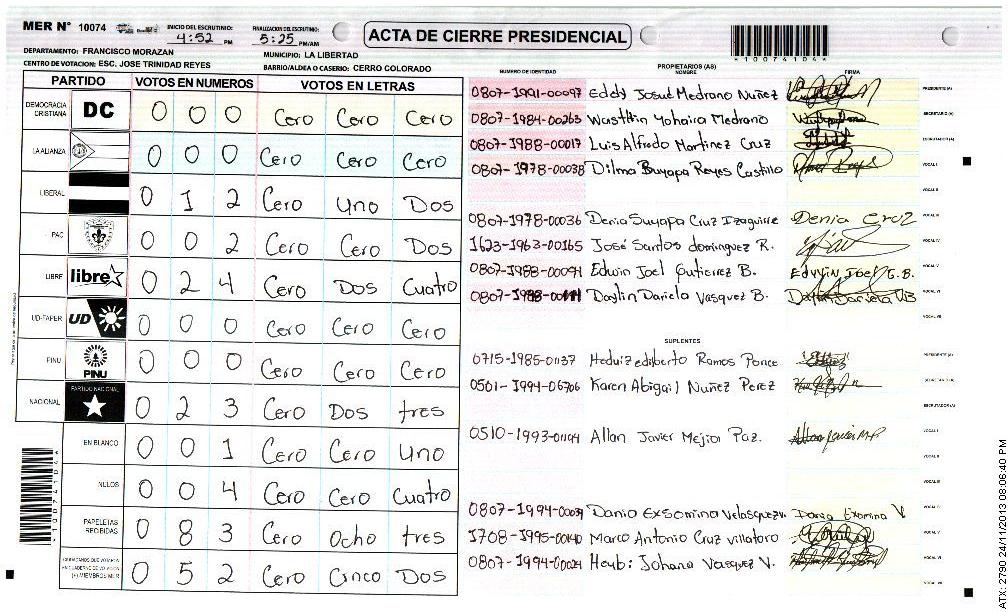 MER Nº 10074
INICIO DEL ESCRUTINIO: 4:52 PM
FINALIZACION DEL ESCRUTINIO: 5:25 PM/AM
ACTA DE CIERRE PRESIDENCIAL
*10074104*
DEPARTAMENTO: FRANCISCO MORAZAN
MUNICIPIO: LA LIBERTAD
CENTRO DE VOTACION: ESC. JOSE TRINIDAD REYES
BARRIO/ALDEA O CASERIO: CERRO COLORADO
PARTIDO VOTOS EN NUMEROS VOTOS EN LETRAS
DEMOCRACIA CRISTIANA DC 0 0 0 Cero Cero Cero
LA ALIANZA 0 0 0 Cero Cero Cero
LIBERAL 0 1 2 Cero Uno Dos
PAC 0 0 2 Cero Cero Dos
LIBRE libre 0 2 4 Cero Dos Cuatro
UD-FAPER UD 0 0 0 Cero Cero Cero
PINU PINU 0 0 0 Cero Cero Cero
NACIONAL PARTIDO NACIONAL 0 2 3 Cero Dos tres
EN BLANCO 0 0 1 Cero Cero Uno
NULOS 0 0 4 Cero Cero Cuatro
PAPELETAS RECIBIDAS 0 8 3 Cero Ocho tres
CIUDADANOS QUE VOTARON EN CUADERNO DE VOTACION (+) MIEMBROS MER 0 5 2 Cero Cinco Dos
NUMERO DE IDENTIDAD PROPIETARIOS (AS) NOMBRE FIRMA
0807-1991-00097 Eddy Josué Medrano Nuñez PRESIDENTE (A)
0807-1984-00263 Wasthin Yohaira Medrano SECRETARIO (A)
0807-1988-00017 Luis Alfredo Martinez Cruz ESCRUTADOR (A)
0807-1978-00038 Dilma Suyapa Reyes Castillo VOCAL I
VOCAL II
0807-1978-00036 Denia Suyapa Cruz Izaguirre Denia Cruz VOCAL III
1623-1963-00165 José Santos dominguez R. VOCAL IV
0807-1988-00091 Edwin Joel Gutierrez B. Edwin Joel G.B. VOCAL V
0807-1988- Daylin Dariela Vasquez B. Daylin Dariela V.B VOCAL VI
VOCAL VII
SUPLENTES
0715-1985-01137 Ramos Ponce PRESIDENTE (A)
0501-1994-06706 Karen Abigail Nuñez Perez SECRETARIO (A)
ESCRUTADOR (A)
0510-1993-01194 Allan Javier Mejia Paz. VOCAL I
VOCAL II
VOCAL III
0807-1994-00039 Dania Exsomina Velasquez V. Dania Exomina V VOCAL IV
1708-1995-00140 Marco Antonio Cruz villatoro VOCAL V
0807-1994-00024 Heybi Johana Vasquez V. VOCAL VI
VOCAL VII
*10074104*
ATX: 2790 24/11/2013 08:06:40 PM